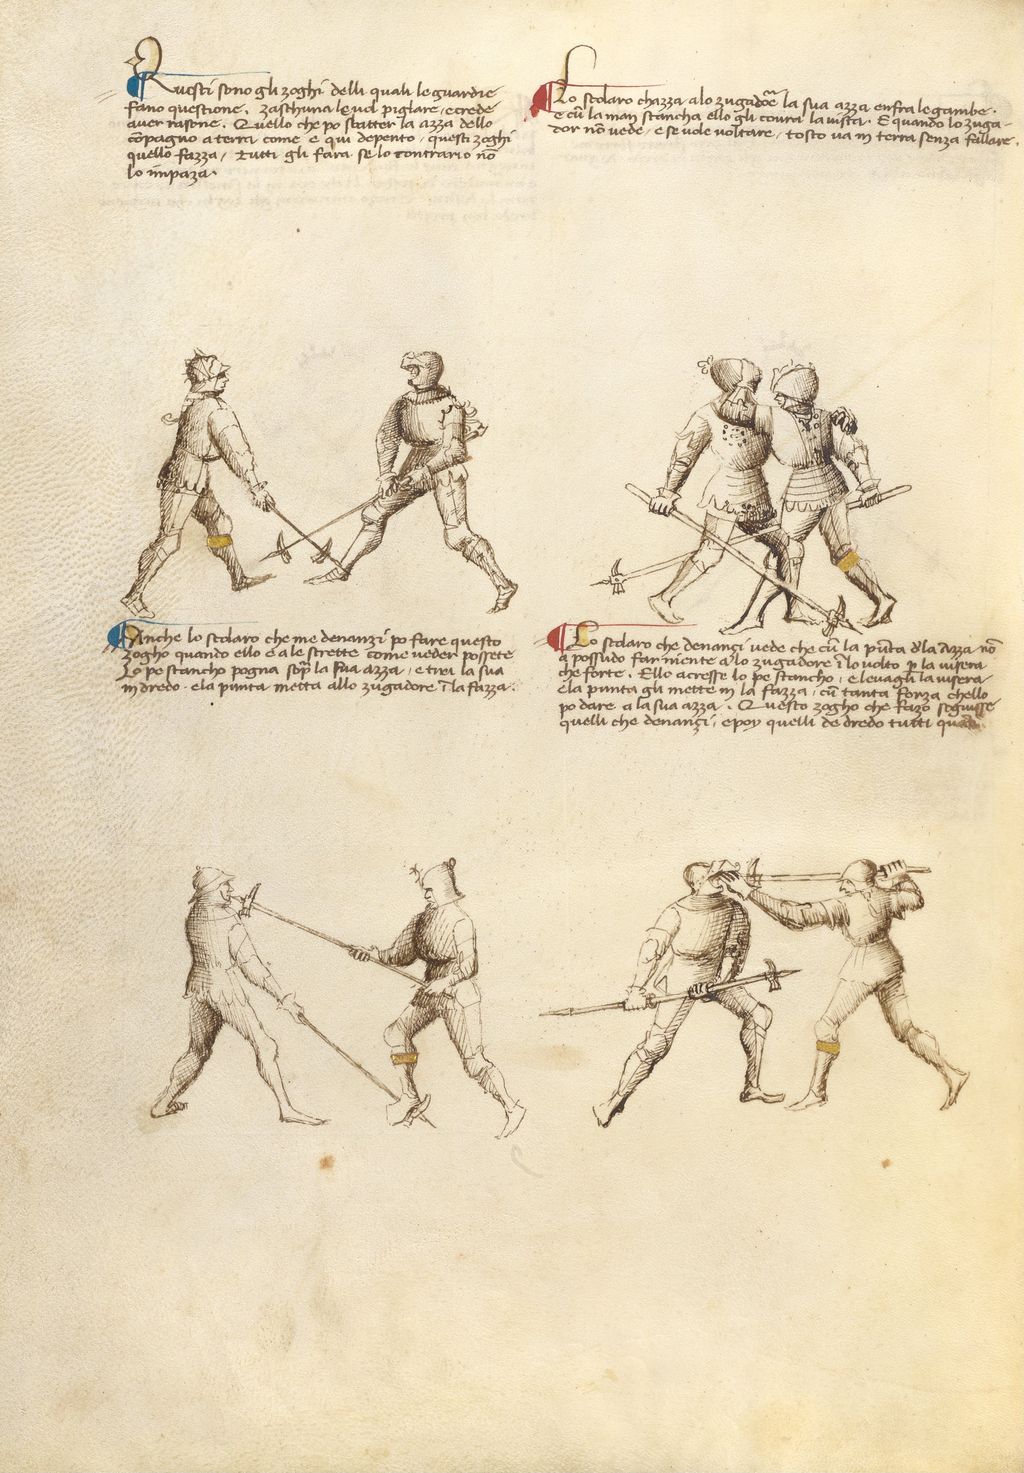 Questi sono gli zoghi delli quali le guardie
fano questione. zaschuna le vol pigliare, e crede
aver rasone. Quello che po sbatter la azza dello
cōpagno a terra come e qui depento, questi zoghi
quello fazza, tutti gli fara se lo contrario nō
lo impaza.
Lo scolaro chazza alo zugadore la sua azza enfra le gambe.
e cū la man stancha ello gli covra la vista. E quando lo zuga-
dor nō vede, e se vole voltare, tosto va in terra senza fallare.
Anche lo scolaro che me denanzi po fare questo
zogho quando ello e a le strette come veder possete
Lo pe stancho pogna sopra la sua azza, e tiri la sua
in dredo. e la punta metta allo zugadore ī la fazza.
Lo scolaro che denanzi vede che cū la pūta dla azza nō
a possudo far niente a lo zugadore ī lo volto p la visera
che forte. Ello acresse lo pe stancho, e levagli la visera
e la punta gli mette in la fazza, cū tanta forza chello
po dare a la sua azza. Questo zogho che fazo seguisse
quelli che denanzi, e poy quelli de dredo tutti